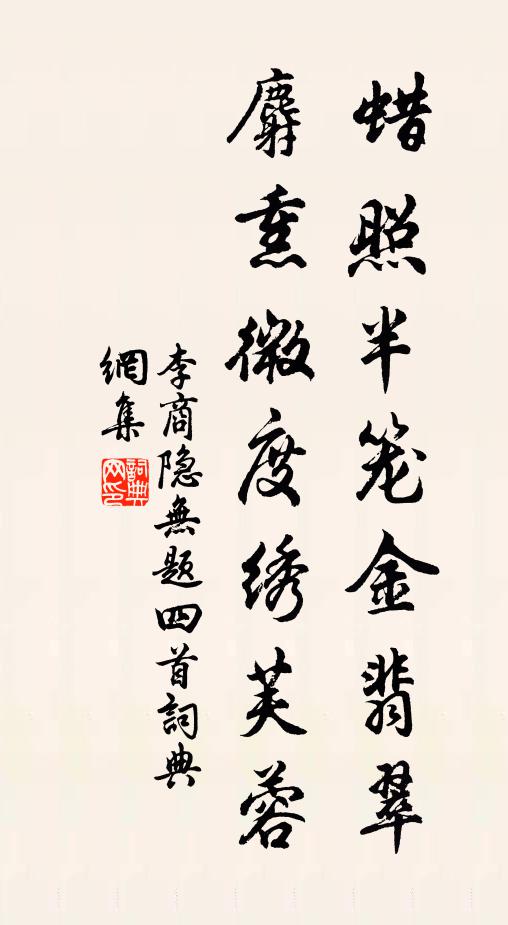 蜡照半笼金翡翠
麝熏微度绣芙蓉
李商隐無题四首詞典
網集
詞典
网印